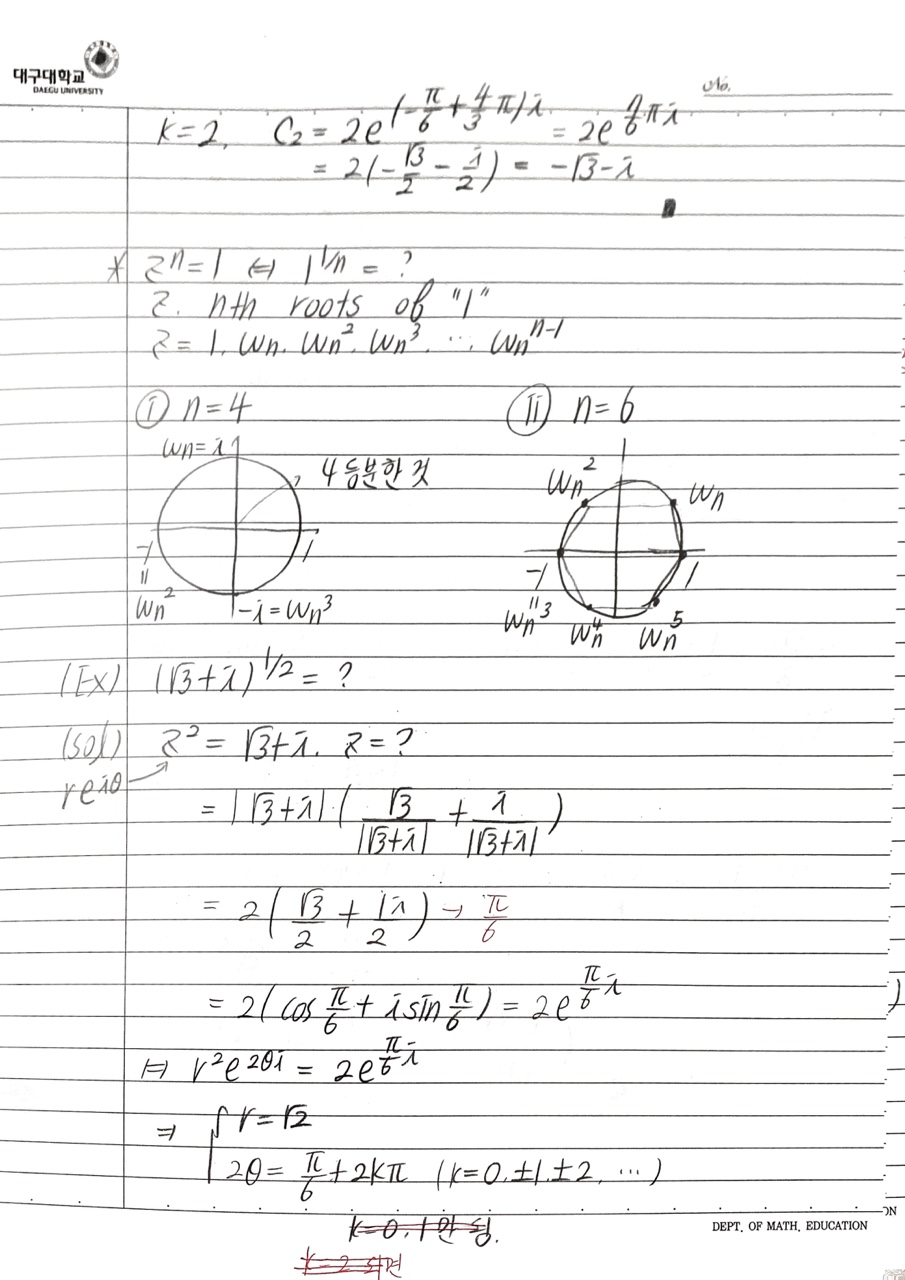 대구대학교
DAEGU UNIVERSITY
No.
K=2, C₂ = 2e^(-π/6 + 4/3 π)i = 2e^(7/6 πi)
= 2(-√3/2 - i/2) = -√3-i
* zⁿ=1 ⇔ 1^(1/n) = ?
z. nth roots of "1"
z = 1, ωn, ωn², ωn³, ⋯ ωn^(n-1)
ⓘ n=4
ⓘⓘ n=6
ωn=i
4등분한 것
-1
1
=
ωn²
-i=ωn³
ωn²
ωn
-1
1
=
ωn³
ωn⁴
ωn⁵
(Ex) (√3+i)^(1/2) = ?
(sol) z² = √3+i. z=?
re^(iθ)
= |√3+i| ( √3/|√3+i| + i/|√3+i| )
= 2( √3/2 + 1i/2 ) → π/6
= 2(cos π/6 + i sin π/6) = 2e^(π/6 i)
⇔ r²e^(2θi) = 2e^(π/6 i)
⇒ { r=√2
2θ = π/6 + 2kπ (k=0, ±1, ±2, ⋯)
DEPT. OF MATH. EDUCATION